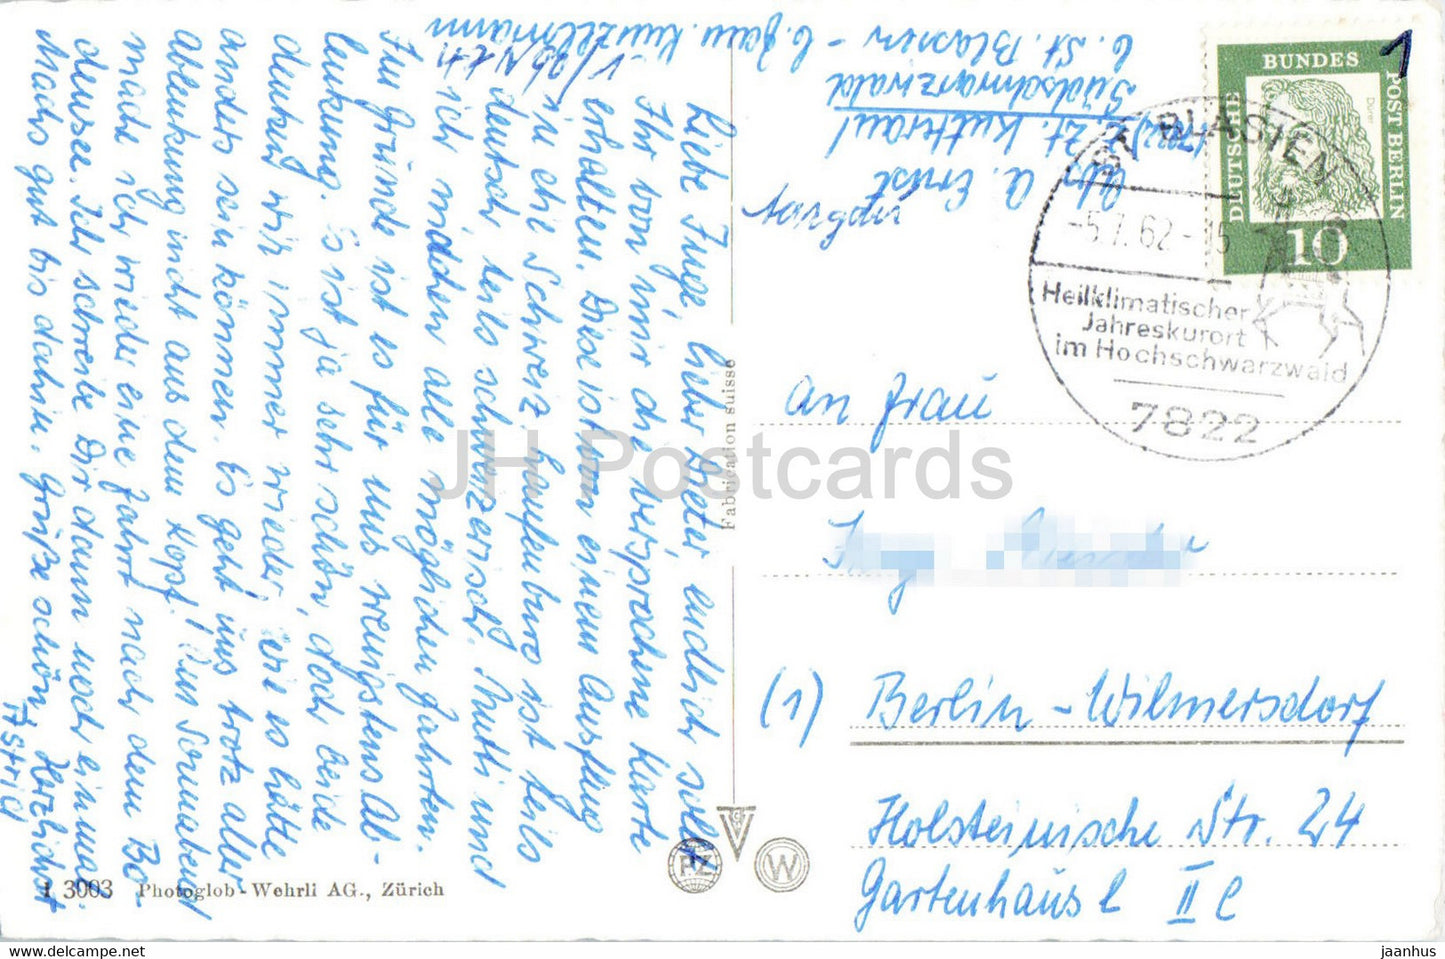 Liebe Inge, lieber Dieter endlich sollt
Ihr von mir die versprochene Karte
erhalten. Diese ist von einem Ausflug
in die Schweiz. Laufenburg ist teils
deutsch, teils schweizerisch. Mutti und
ich machten alle möglichen Fahrten.
Im Grunde ist es für uns wenigstens Ab-
lenkung. Es ist ja sehr schön, doch beide
denken wir immer wieder, wie es hätte
anders sein können. Es geht uns trotz aller
Ablenkung nicht aus dem Kopf! Am Sonnabend
mache ich wieder eine Fahrt nach dem Bo-
densee. Ich schreibe Dir dann noch einmal.
Machs gut bis dahin. Grüße schön, Herzlichst
Astrid
Abs. A. Ernst
z. Zt. Kutterau
Südschwarzwald
b. St. Blasien - b. Fam. Künzelmann
DEUTSCHE BUNDESPOST BERLIN
Dürer
10
1
ST. BLASIEN
-5.7.62-15
Heilklimatischer
Jahreskurort
im Hochschwarzwald
7822
An Frau
Inge
(1) Berlin-Wilmersdorf
Holsteinische Str. 24
Gartenhaus II
Fabrication suisse
PZ
W
1 3003 Photoglob-Wehrli AG., Zürich
JH Postcards
www.delcampe.net
jaanhus